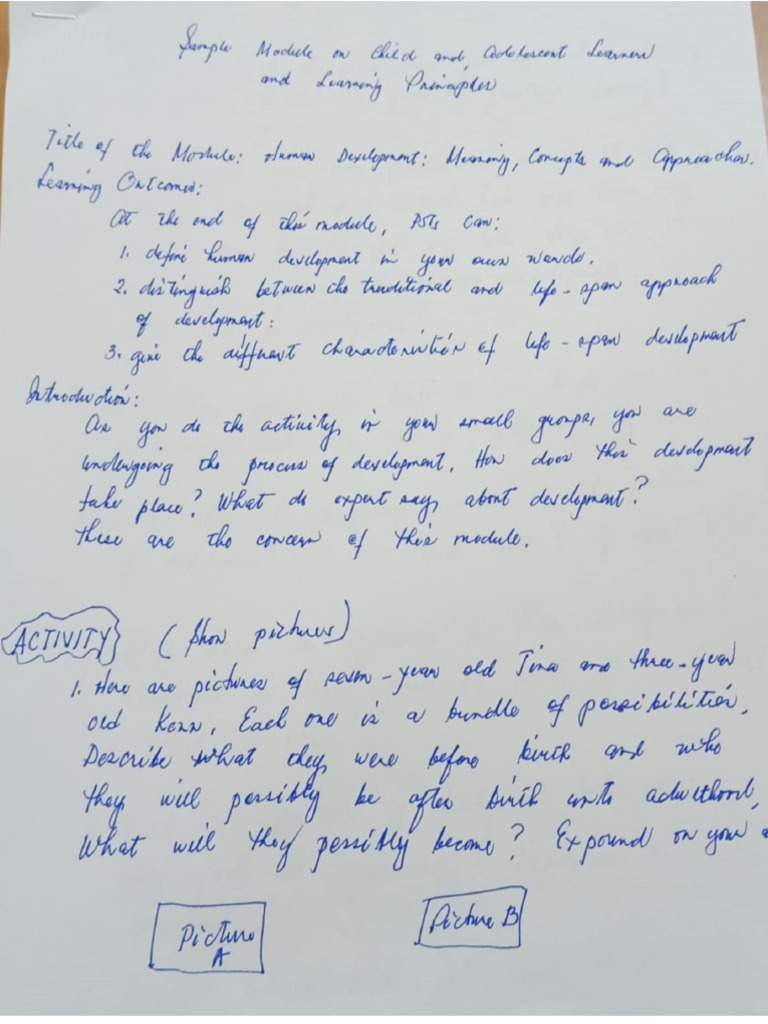 Sample Module on Child and Adolescent Learners
and Learning Principles
Title of the Module: Human Development: Meaning, Concepts and Approaches.
Learning Outcomes:
At the end of this module, PSTs can:
1. define human development in your own words.
2. distinguish between the traditional and life-span approach
of development:
3. give the different characteristics of life-span development
Introduction:
As you do the activity in your small groups, you are
undergoing the process of development. How does this development
take place? What do expert say about development?
These are the concern of this module.
ACTIVITY (Show pictures)
1. Here are pictures of seven-year old Tina and three-year
old Kenn, Each one is a bundle of possibilities,
Describe what they were before birth and who
they will possibly be after birth unto adulthood,
What will they possibly become? Expound on your
Picture A
Picture B